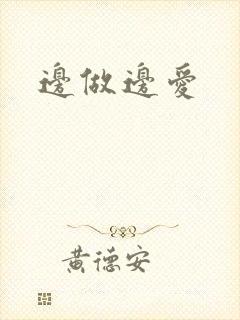 邊做邊愛
黃德安